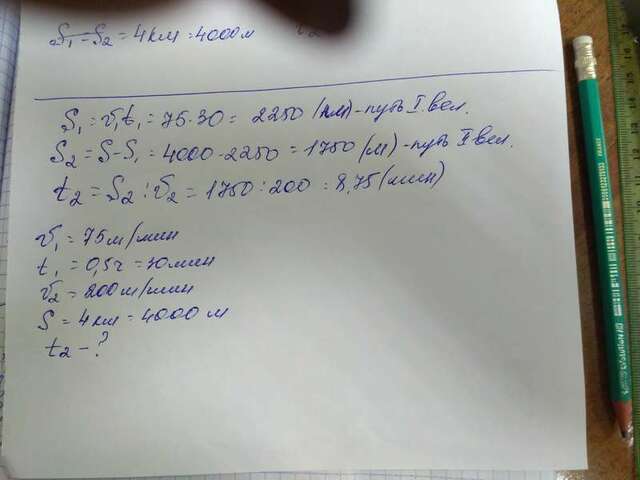 S₁ = S₂ = 4 км = 4000 м
S₁ = v₁t₁ = 75·30 = 2250 (км) - путь I вел.
S₂ = S-S₁ = 4000-2250 = 1750 (м) - путь II вел.
t₂ = S₂ : v₂ = 1750 : 200 = 8,75 (мин)
v₁ = 75 м/мин
t₁ = 0,5ч = 30 мин
v₂ = 200 м/мин
S = 4 км = 4000 м
t₂ - ?